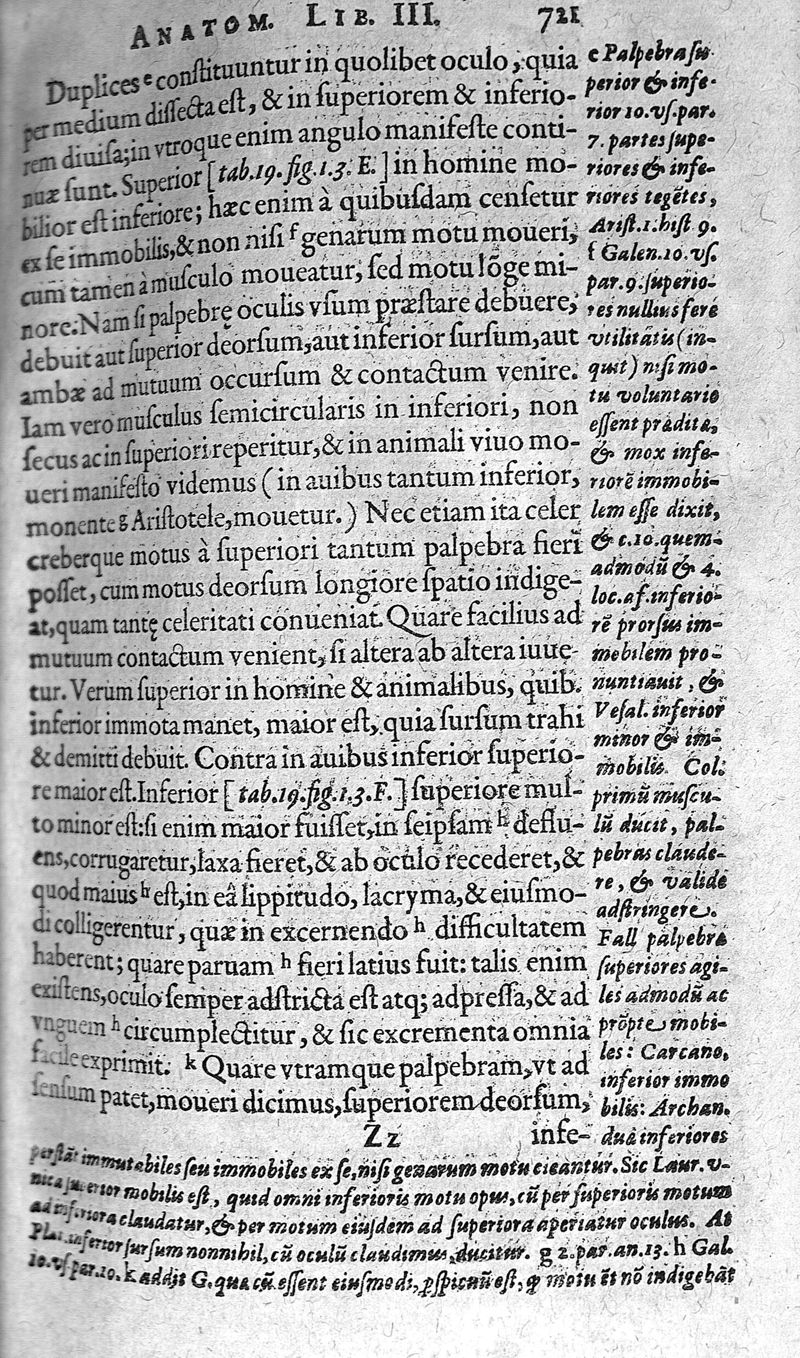 ANATOM. LIB. III. 721
Duplices e conſtituuntur in quolibet oculo, quia
per medium diſſecta eſt, & in ſuperiorem & inferio-
rem diuiſa; in vtroque enim angulo manifeſte conti-
nuæ ſunt. Superior [tab.19. fig.1.3. E.] in homine mo-
bilior eſt inferiore; hæc enim à quibuſdam cenſetur
ex ſe immobilis, & non niſi f genarum motu moueri,
cum tamen à muſculo moueatur, ſed motu lõge mi-
nore. Nam ſi palpebrę oculis vſum præſtare debuere,
debuit aut ſuperior deorſum, aut inferior ſurſum, aut
ambæ ad mutuum occurſum & contactum venire.
Iam vero muſculus ſemicircularis in inferiori, non
ſecus ac in ſuperiori reperitur, & in animali viuo mo-
ueri manifeſto videmus (in auibus tantum inferior,
monente g Ariſtotele, mouetur.) Nec etiam ita celer
creberque motus à ſuperiori tantum palpebra fieri
poſſet, cum motus deorſum longiore ſpatio indige-
at, quam tantę celeritati conueniat. Quare facilius ad
mutuum contactum venient, ſi altera ab altera iuue-
tur. Verum ſuperior in homine & animalibus, quib.
inferior immota manet, maior eſt, quia ſurſum trahi
& demitti debuit. Contra in auibus inferior ſuperio-
re maior eſt. Inferior [tab.19. fig.1.3. F.] ſuperiore mul-
to minor eſt: ſi enim maior fuiſſet, in ſeipſam h deflu-
ens, corrugaretur, laxa fieret, & ab oculo recederet, &
quod maius h eſt, in eâ lippitudo, lacryma, & eiuſmo-
di colligerentur, quæ in excernendo h difficultatem
haberent; quare paruam h fieri latius fuit: talis enim
exiſtens, oculo ſemper adſtricta eſt atq; adpreſſa, & ad
vnguem h circumplectitur, & ſic excrementa omnia
facile exprimit. k Quare vtramque palpebram, vt ad
ſenſum patet, moueri dicimus, ſuperiorem deorſum,
Zz infe-
e Palpebra ſu
perior & infe-
rior 10. vſ. par.
7. partes ſupe-
riores & infe-
riores tegẽtes,
Ariſt. 1. hiſt 9.
f Galen. 10. vſ.
par. 9. ſuperio-
res nullius ferè
vtilitatis (in-
quit) niſi mo-
tu voluntario
eſſent prædita,
& mox infe-
riorẽ immobi-
lem eſſe dixit,
& c. 10. quem-
admodũ & 4.
loc. af. inferio-
rẽ prorſus im-
mobilem pro-
nuntiauit, &
Veſal. inferior
minor & im-
mobilis. Col.
primũ muſcu-
lũ ducit, pal-
pebras claude-
re, & valide
adſtringere.
Fall palpebrę
ſuperiores agi-
les admodũ ac
prõpte mobi-
les: Carcano,
inferior immo
bilis: Archan.
duâ inferiores
perſtãt immutabiles ſeu immobiles ex ſe, niſi genarum motu cieantur. Sic Laur. v-
nica ſuperior mobilis eſt, quid omni inferioris motu opus, cũ per ſuperioris motum
ad inferiora claudatur, & per motum eiuſdem ad ſuperiora aperiatur oculus. At
Plat. inferior ſurſum nonnihil, cũ oculũ claudimus, ducitur. g 2. par. an. 13. h Gal.
10. vſ par. 10. k addit G. qua cũ eſſent eiuſmodi, ꝑſpicuũ eſt, ꝙ motu ẽt nõ indigebãt